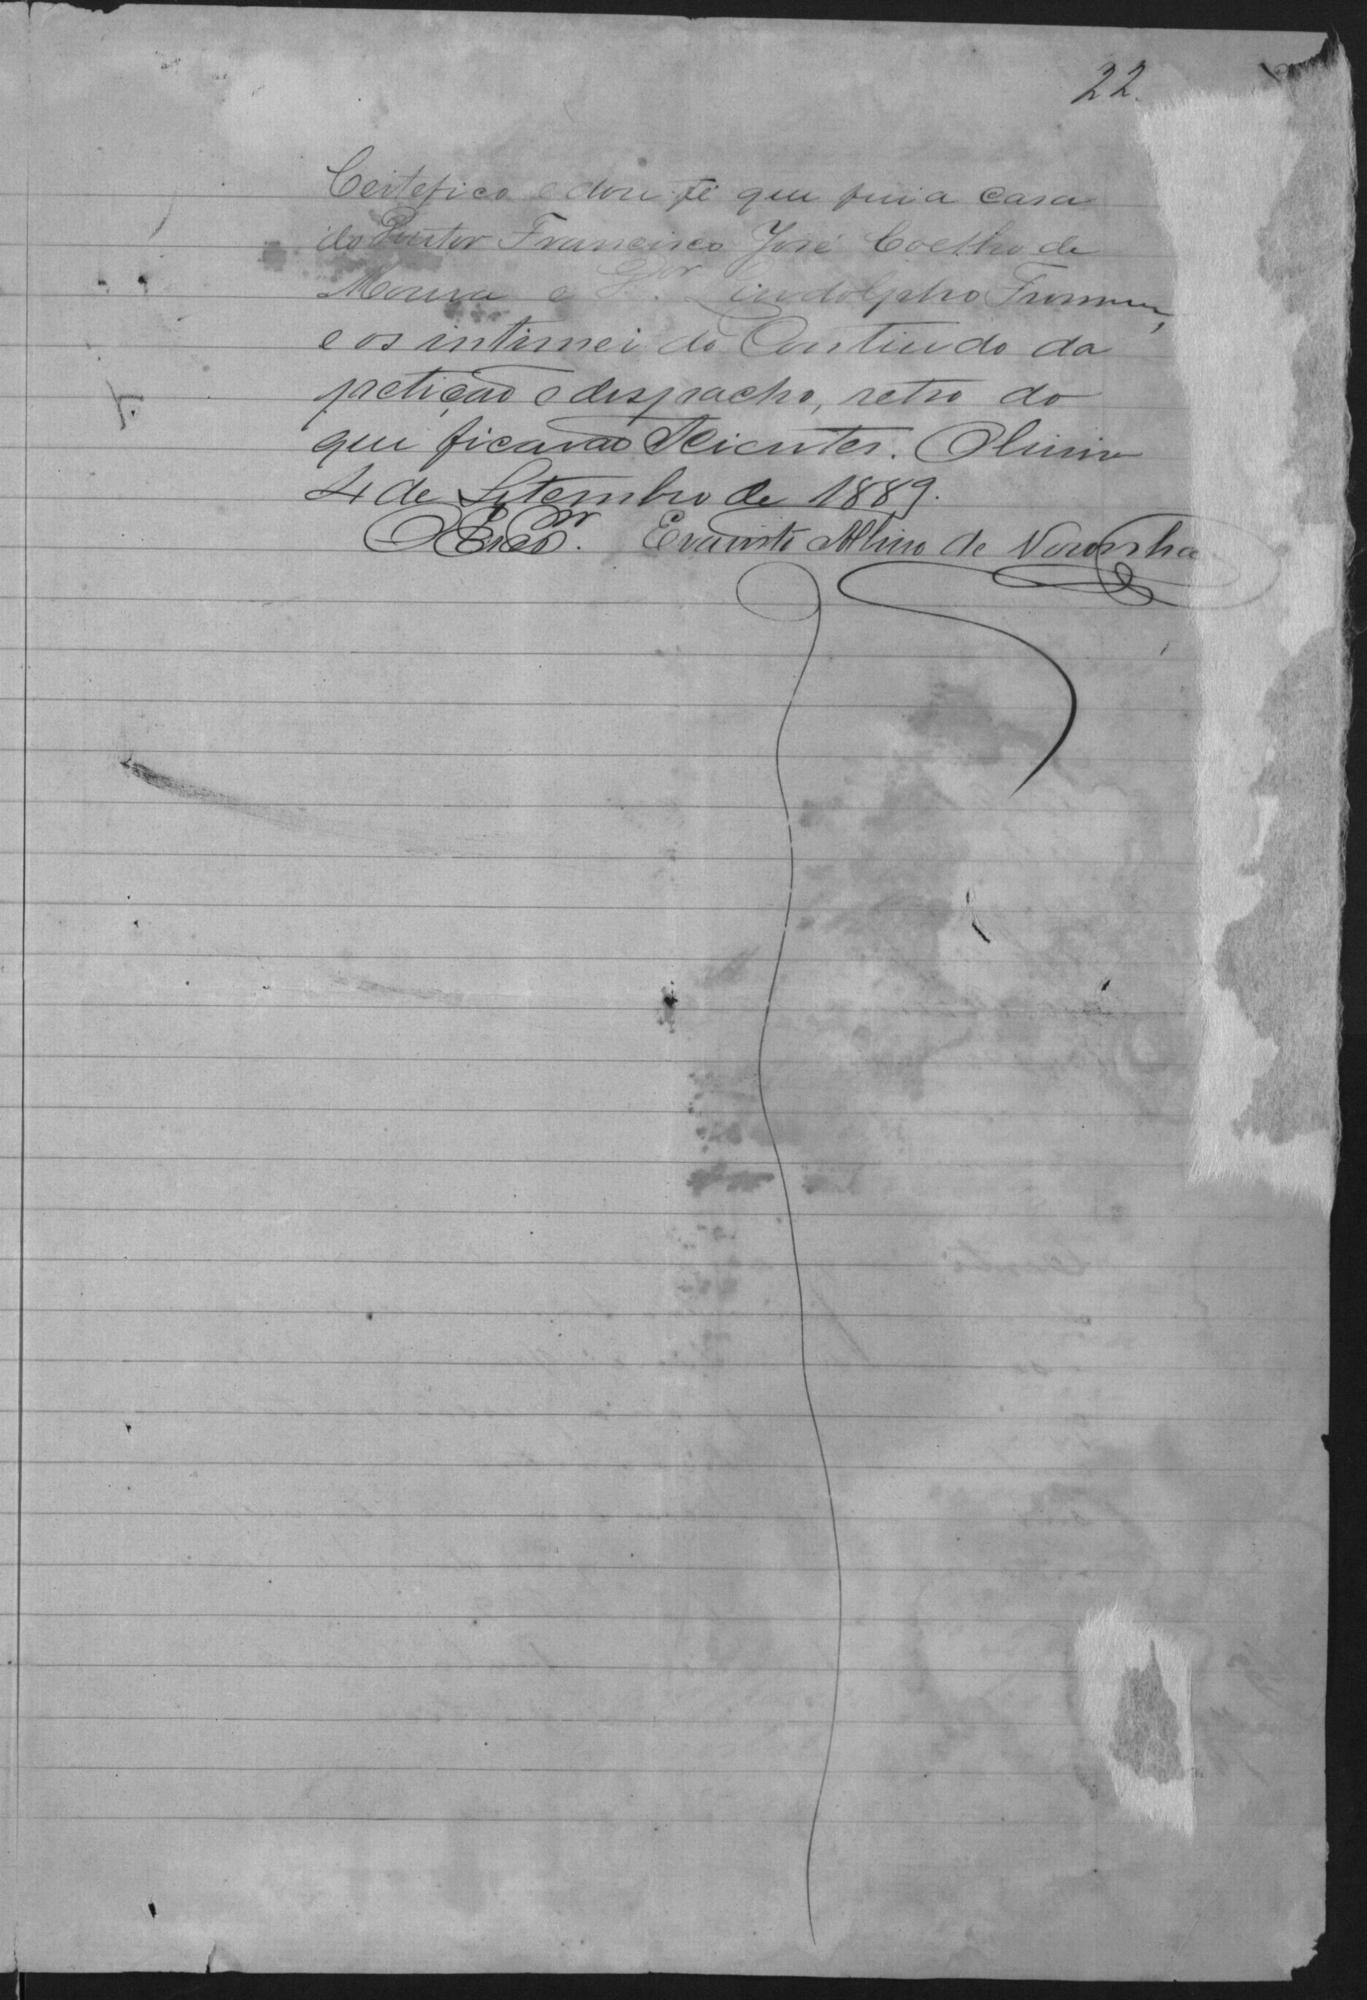 22.
Certefico e dou fé que fui a casa
do Pintor Francisco José Coelho de
Moura e Dor. Lindolpho
e os intimei do Contiudo da
petição e despacho, retro do
que ficarão Scientes.
4 de Setembro de 1889.
Evaristo Albino de Noronha